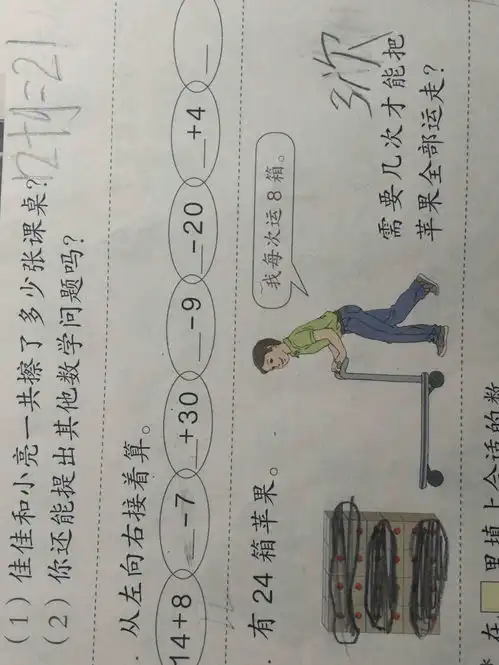 (1) 佳佳和小亮一共擦了多少张课桌?
12+9=21
(2) 你还能提出其他数学问题吗?
从左向右接着算。
14+8 _-7 _+30 _-9 _-20 _+4 _
有 24 箱苹果。
我每次运 8 箱。
3次
需要几次才能把
苹果全部运走?
里填上合适的数